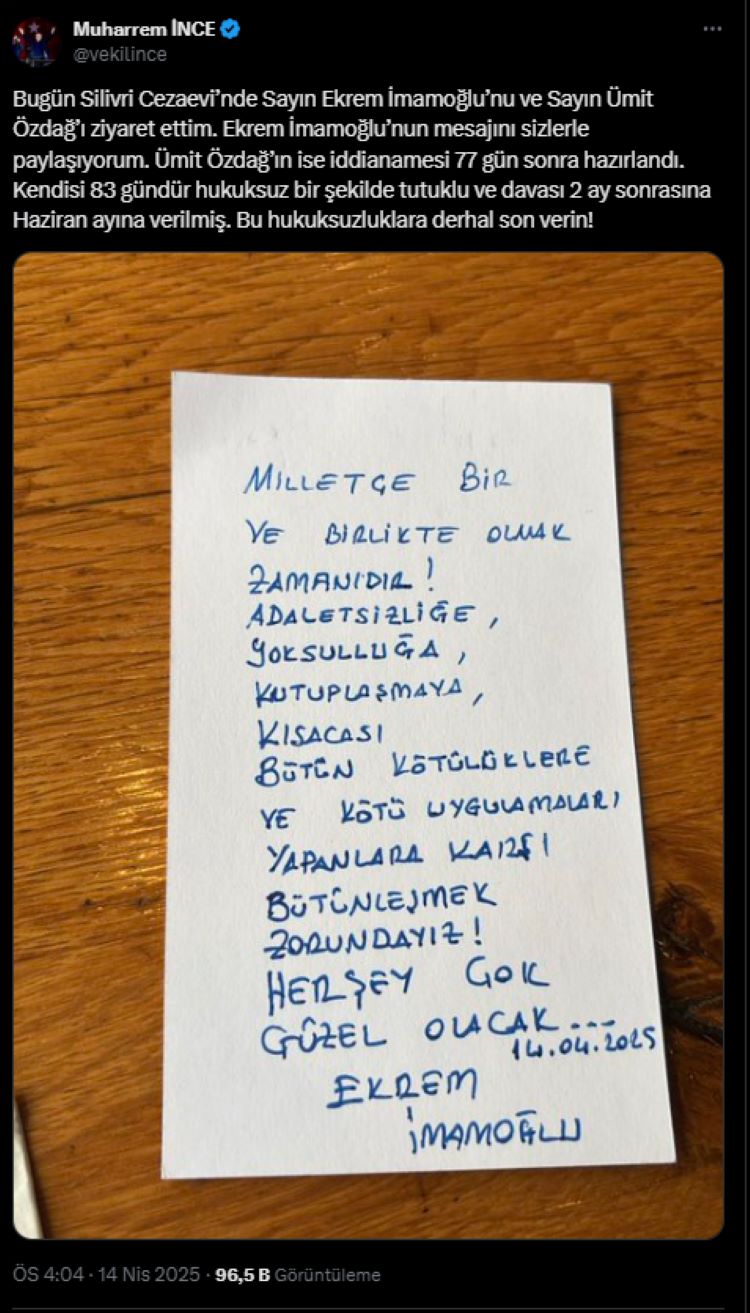 Muharrem İNCE
@vekilince
Bugün Silivri Cezaevi'nde Sayın Ekrem İmamoğlu'nu ve Sayın Ümit
Özdağ'ı ziyaret ettim. Ekrem İmamoğlu'nun mesajını sizlerle
paylaşıyorum. Ümit Özdağ'ın ise iddianamesi 77 gün sonra hazırlandı.
Kendisi 83 gündür hukuksuz bir şekilde tutuklu ve davası 2 ay sonrasına
Haziran ayına verilmiş. Bu hukuksuzluklara derhal son verin!
MİLLETÇE BİR
VE BİRLİKTE OLMAK
ZAMANIDIR!
ADALETSİZLİĞE,
YOKSULLUĞA,
KUTUPLAŞMAYA,
KISACASI
BÜTÜN KÖTÜLÜKLERE
VE KÖTÜ UYGULAMALARI
YAPANLARA KARŞI
BÜTÜNLEŞMEK
ZORUNDAYIZ!
HERŞEY ÇOK
GÜZEL OLACAK...
14.04.2025
EKREM
İMAMOĞLU
ÖS 4:04 · 14 Nis 2025 · 96,5 B Görüntüleme